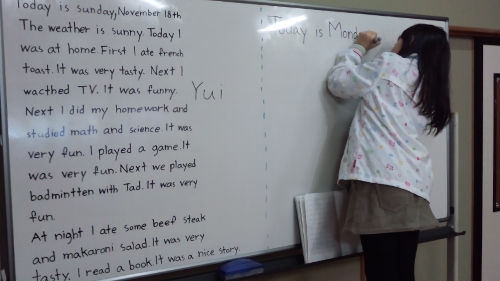 Today is sunday, November 18th
The weather is sunny. Today I
was at home. First I ate french
toast. It was very tasty. Next I
wacthed TV. It was funny.
Next I did my homework and
studied math and science. It was
very fun. I played a game. It
was very fun. Next we played
badmintten with Tad. It was very
fun.
At night I ate some beef steak
and makaroni salad. It was very
tasty. I read a book. It was a nice story.
Yui
Today is Mond